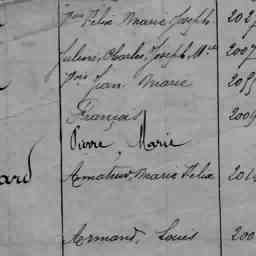 Félix Marie Joseph 202
Julien, Charles, Joseph, M 2007
Jean Marie
François 200
Pierre Marie
ard Amateur, Marie Félix 20
Armand, Louis 200